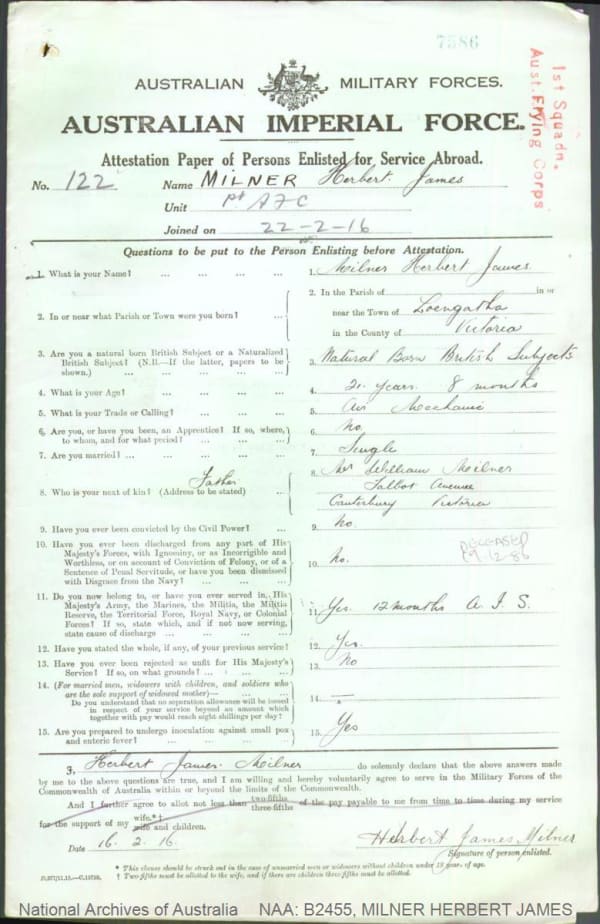 7586
AUSTRALIAN MILITARY FORCES.
AUSTRALIAN IMPERIAL FORCE.
1st Squadn.
Aust. Flying Corps
Attestation Paper of Persons Enlisted for Service Abroad.
No. 122 Name MILNER Herbert James
Unit AFC
Joined on 22-2-16
Questions to be put to the Person Enlisting before Attestation.
1. What is your Name? ... ... ... ... 1. Milner Herbert James
2. In or near what Parish or Town were you born? ... 2. In the Parish of in or
near the Town of Leongatha
in the County of Victoria
3. Are you a natural born British Subject or a Naturalized
British Subject? (N.B.—If the latter, papers to be
shown.) ... ... ... ... 3. Natural Born British Subjects
4. What is your Age? ... ... ... 4. 21 years 8 months
5. What is your Trade or Calling? ... ... ... 5. Air Mechanic
6. Are you, or have you been, an Apprentice? If so, where,
to whom, and for what period? ... ... ... 6. No.
7. Are you married? ... ... ... ... 7. Single
8. Who is your next of kin? (Address to be stated) ... Father 8. Mr William Milner
Talbot Avenue
Canterbury Victoria
9. Have you ever been convicted by the Civil Power? ... 9. No.
10. Have you ever been discharged from any part of His
Majesty's Forces, with Ignominy, or as Incorrigible and
Worthless, or on account of Conviction of Felony, or of a
Sentence of Penal Servitude, or have you been dismissed
with Disgrace from the Navy? ... ... ... 10. No.
DECEASED
19.12.86
11. Do you now belong to, or have you ever served in, His
Majesty's Army, the Marines, the Militia, the Militia
Reserve, the Territorial Force, Royal Navy, or Colonial
Forces? If so, state which, and if not now serving,
state cause of discharge ... ... ... ... 11. Yes. 12 months A. I. S.
12. Have you stated the whole, if any, of your previous service? 12. Yes.
13. Have you ever been rejected as unfit for His Majesty's
Service? If so, on what grounds? ... ... ... 13. No
14. (For married men, widowers with children, and soldiers who
are the sole support of widowed mother)—
Do you understand that no separation allowance will be issued
in respect of your service beyond an amount which
together with pay would reach eight shillings per day? 14. —
15. Are you prepared to undergo inoculation against small pox
and enteric fever? ... ... ... ... 15. Yes
I, Herbert James Milner do solemnly declare that the above answers made
by me to the above questions are true, and I am willing and hereby voluntarily agree to serve in the Military Forces of the
Commonwealth of Australia within or beyond the limits of the Commonwealth.
And I further agree to allot not less than two-fifths three-fifths of the pay payable to me from time to time during my service
for the support of my wife.*† wife and children.
Date 16. 2. 16. Herbert James Milner
Signature of person enlisted.
* This clause should be struck out in the case of unmarried men or widowers without children under 18 years of age.
† Two-fifths must be allotted to the wife, and if there are children three-fifths must be allotted.
National Archives of Australia NAA: B2455, MILNER HERBERT JAMES